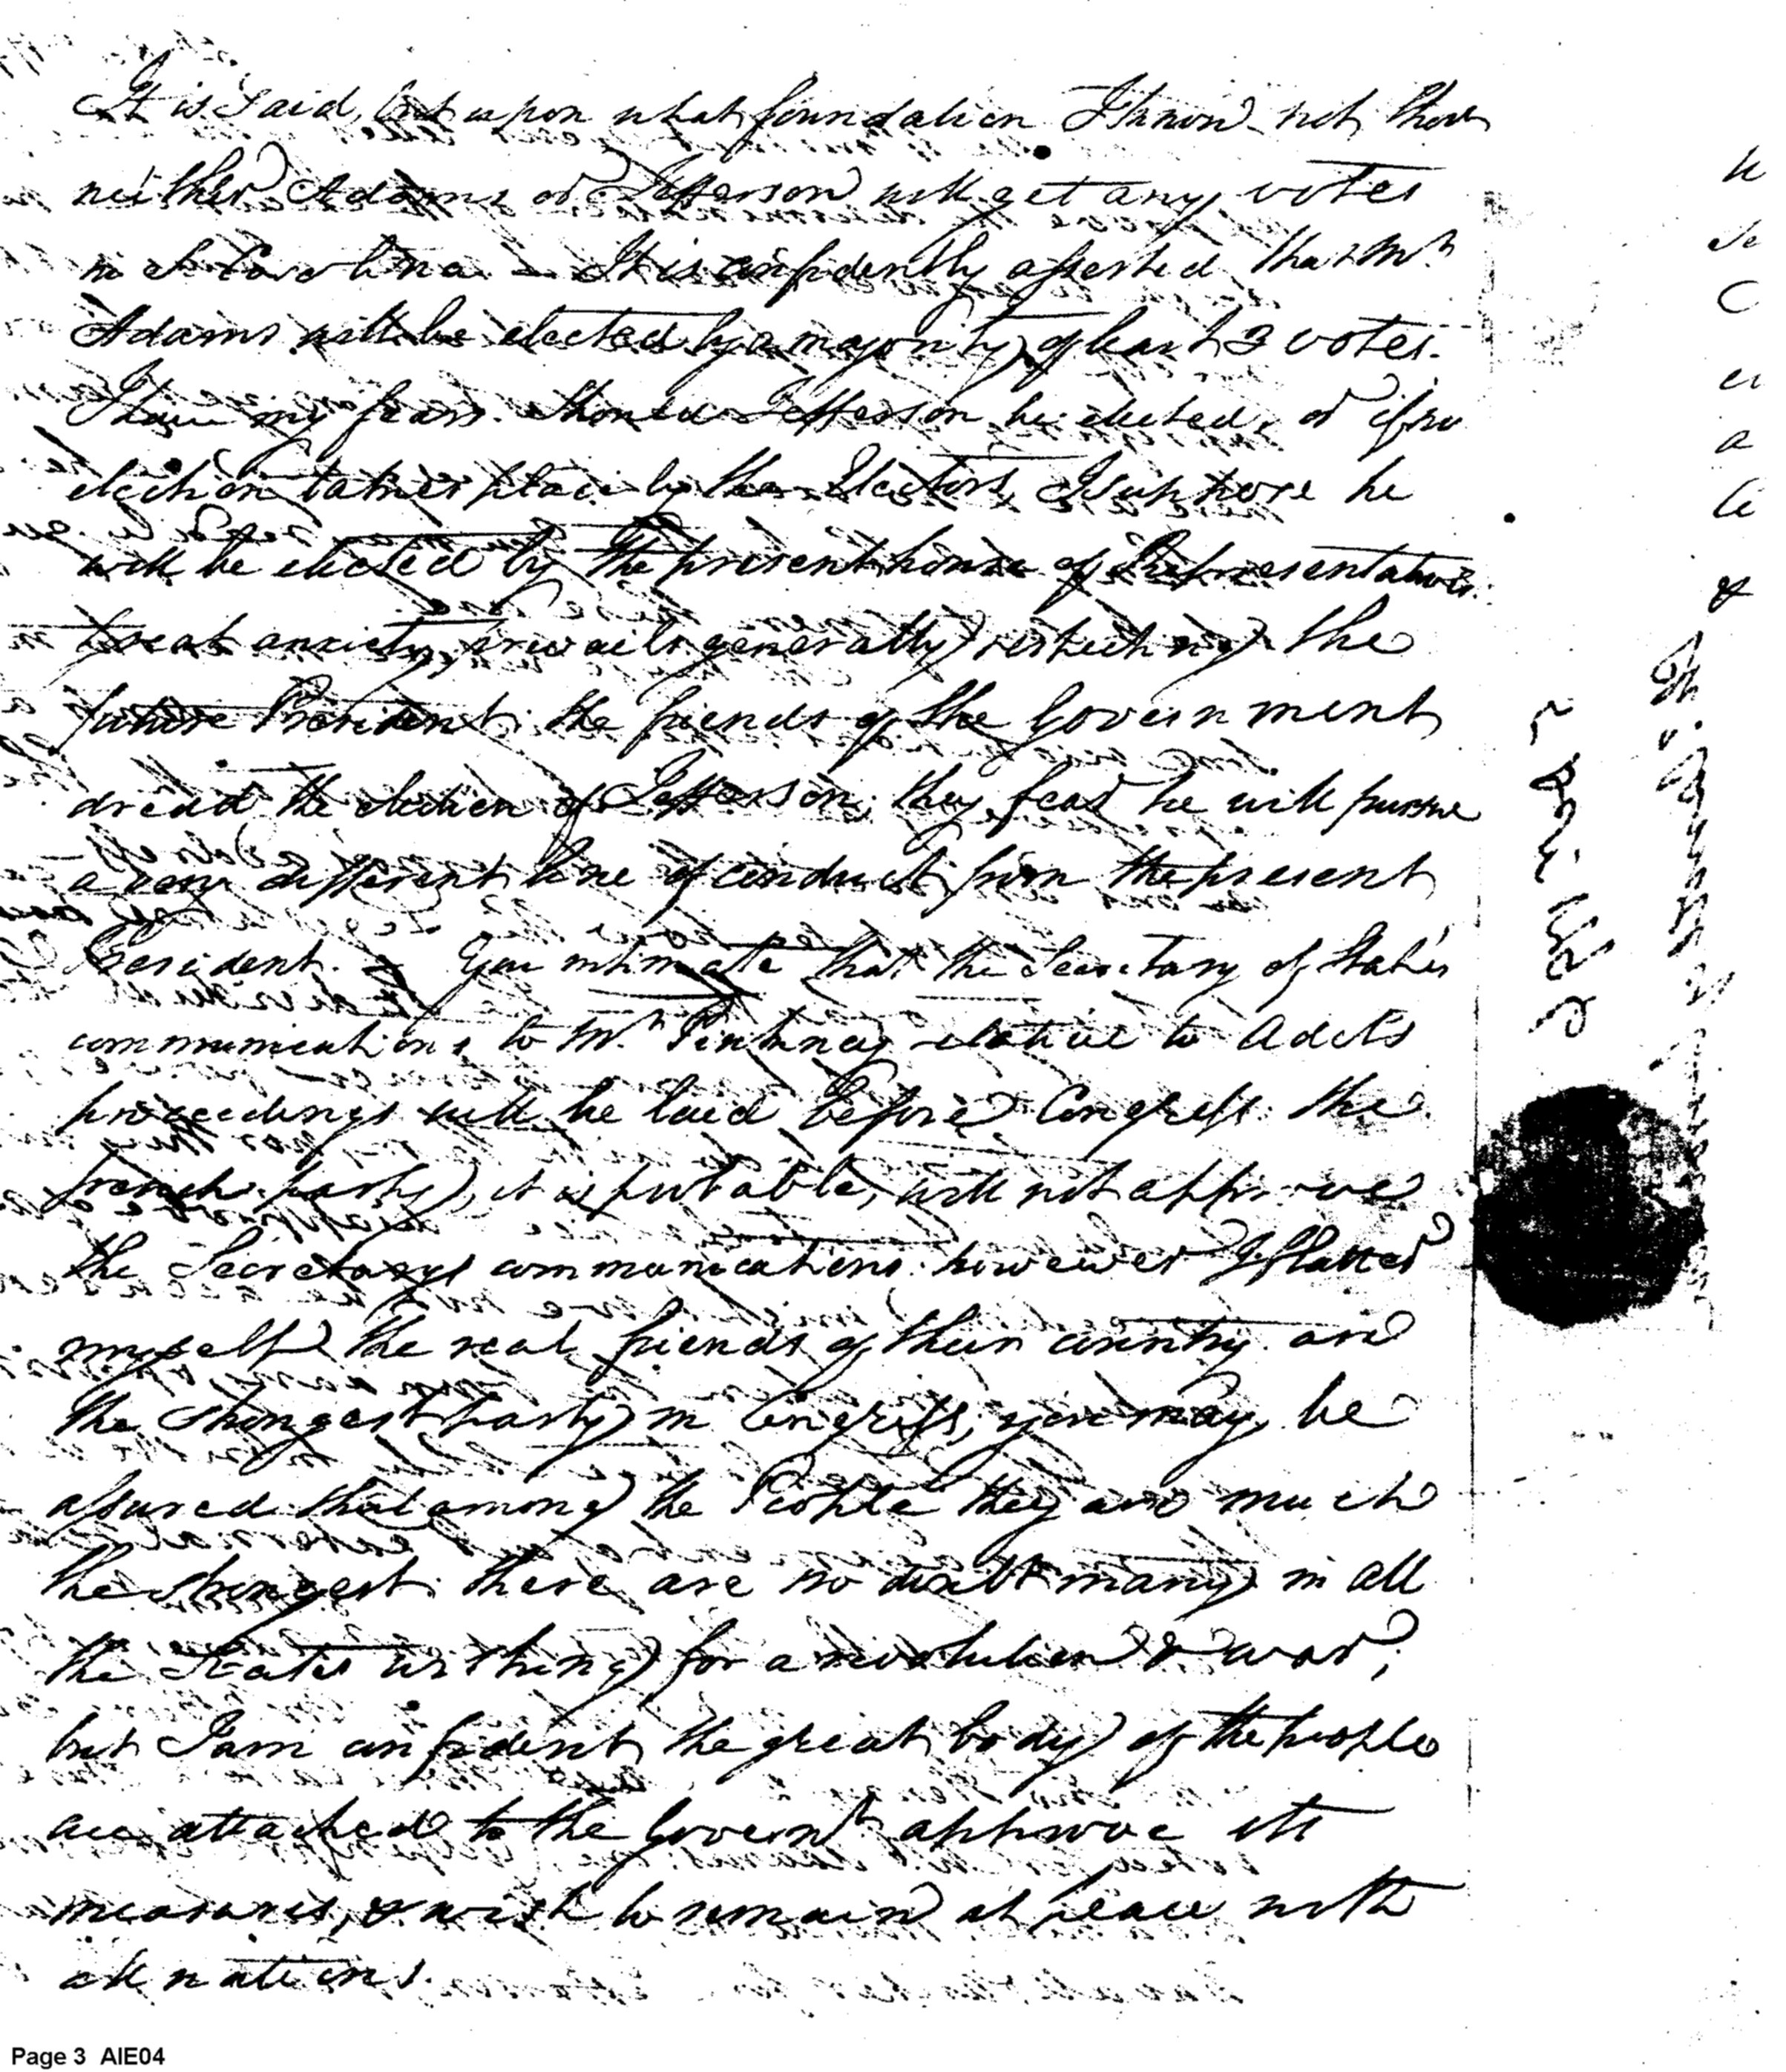 It is said, but upon what foundation I know not that
neither Adams or Jefferson will get any votes
in S Carolina – It is confidently asserted that Mr
Adams will be elected by a majority of least 3 votes.
I have my fears. Should Jefferson be elected, or if no
election takes place by the Electors, I suppose he
will be elected by the present house of Representatives.
Great anxiety prevails generally respecting the
future President; the friends of the Government
dread the election of Jefferson; they fear he will pursue
a very different line of conduct from the present
President. – You intimate that the Secretary of State's
communications to Mr Pinkney relative to Adets
proceedings will be laid before Congress: the
french party, it is probable, will not approve
the Secretarys communications: however I flatter
myself the real friends of their country are
the strongest party in Congress; you may be
assured that among the People they are much
the strongest: there are no doubt many in all
the States wishing for a revolution & war;
but I am confident the great body of the people
are attached to the Governt approve its
measures, & wish to remain at peace with
all nations.
Page 3 AIE04